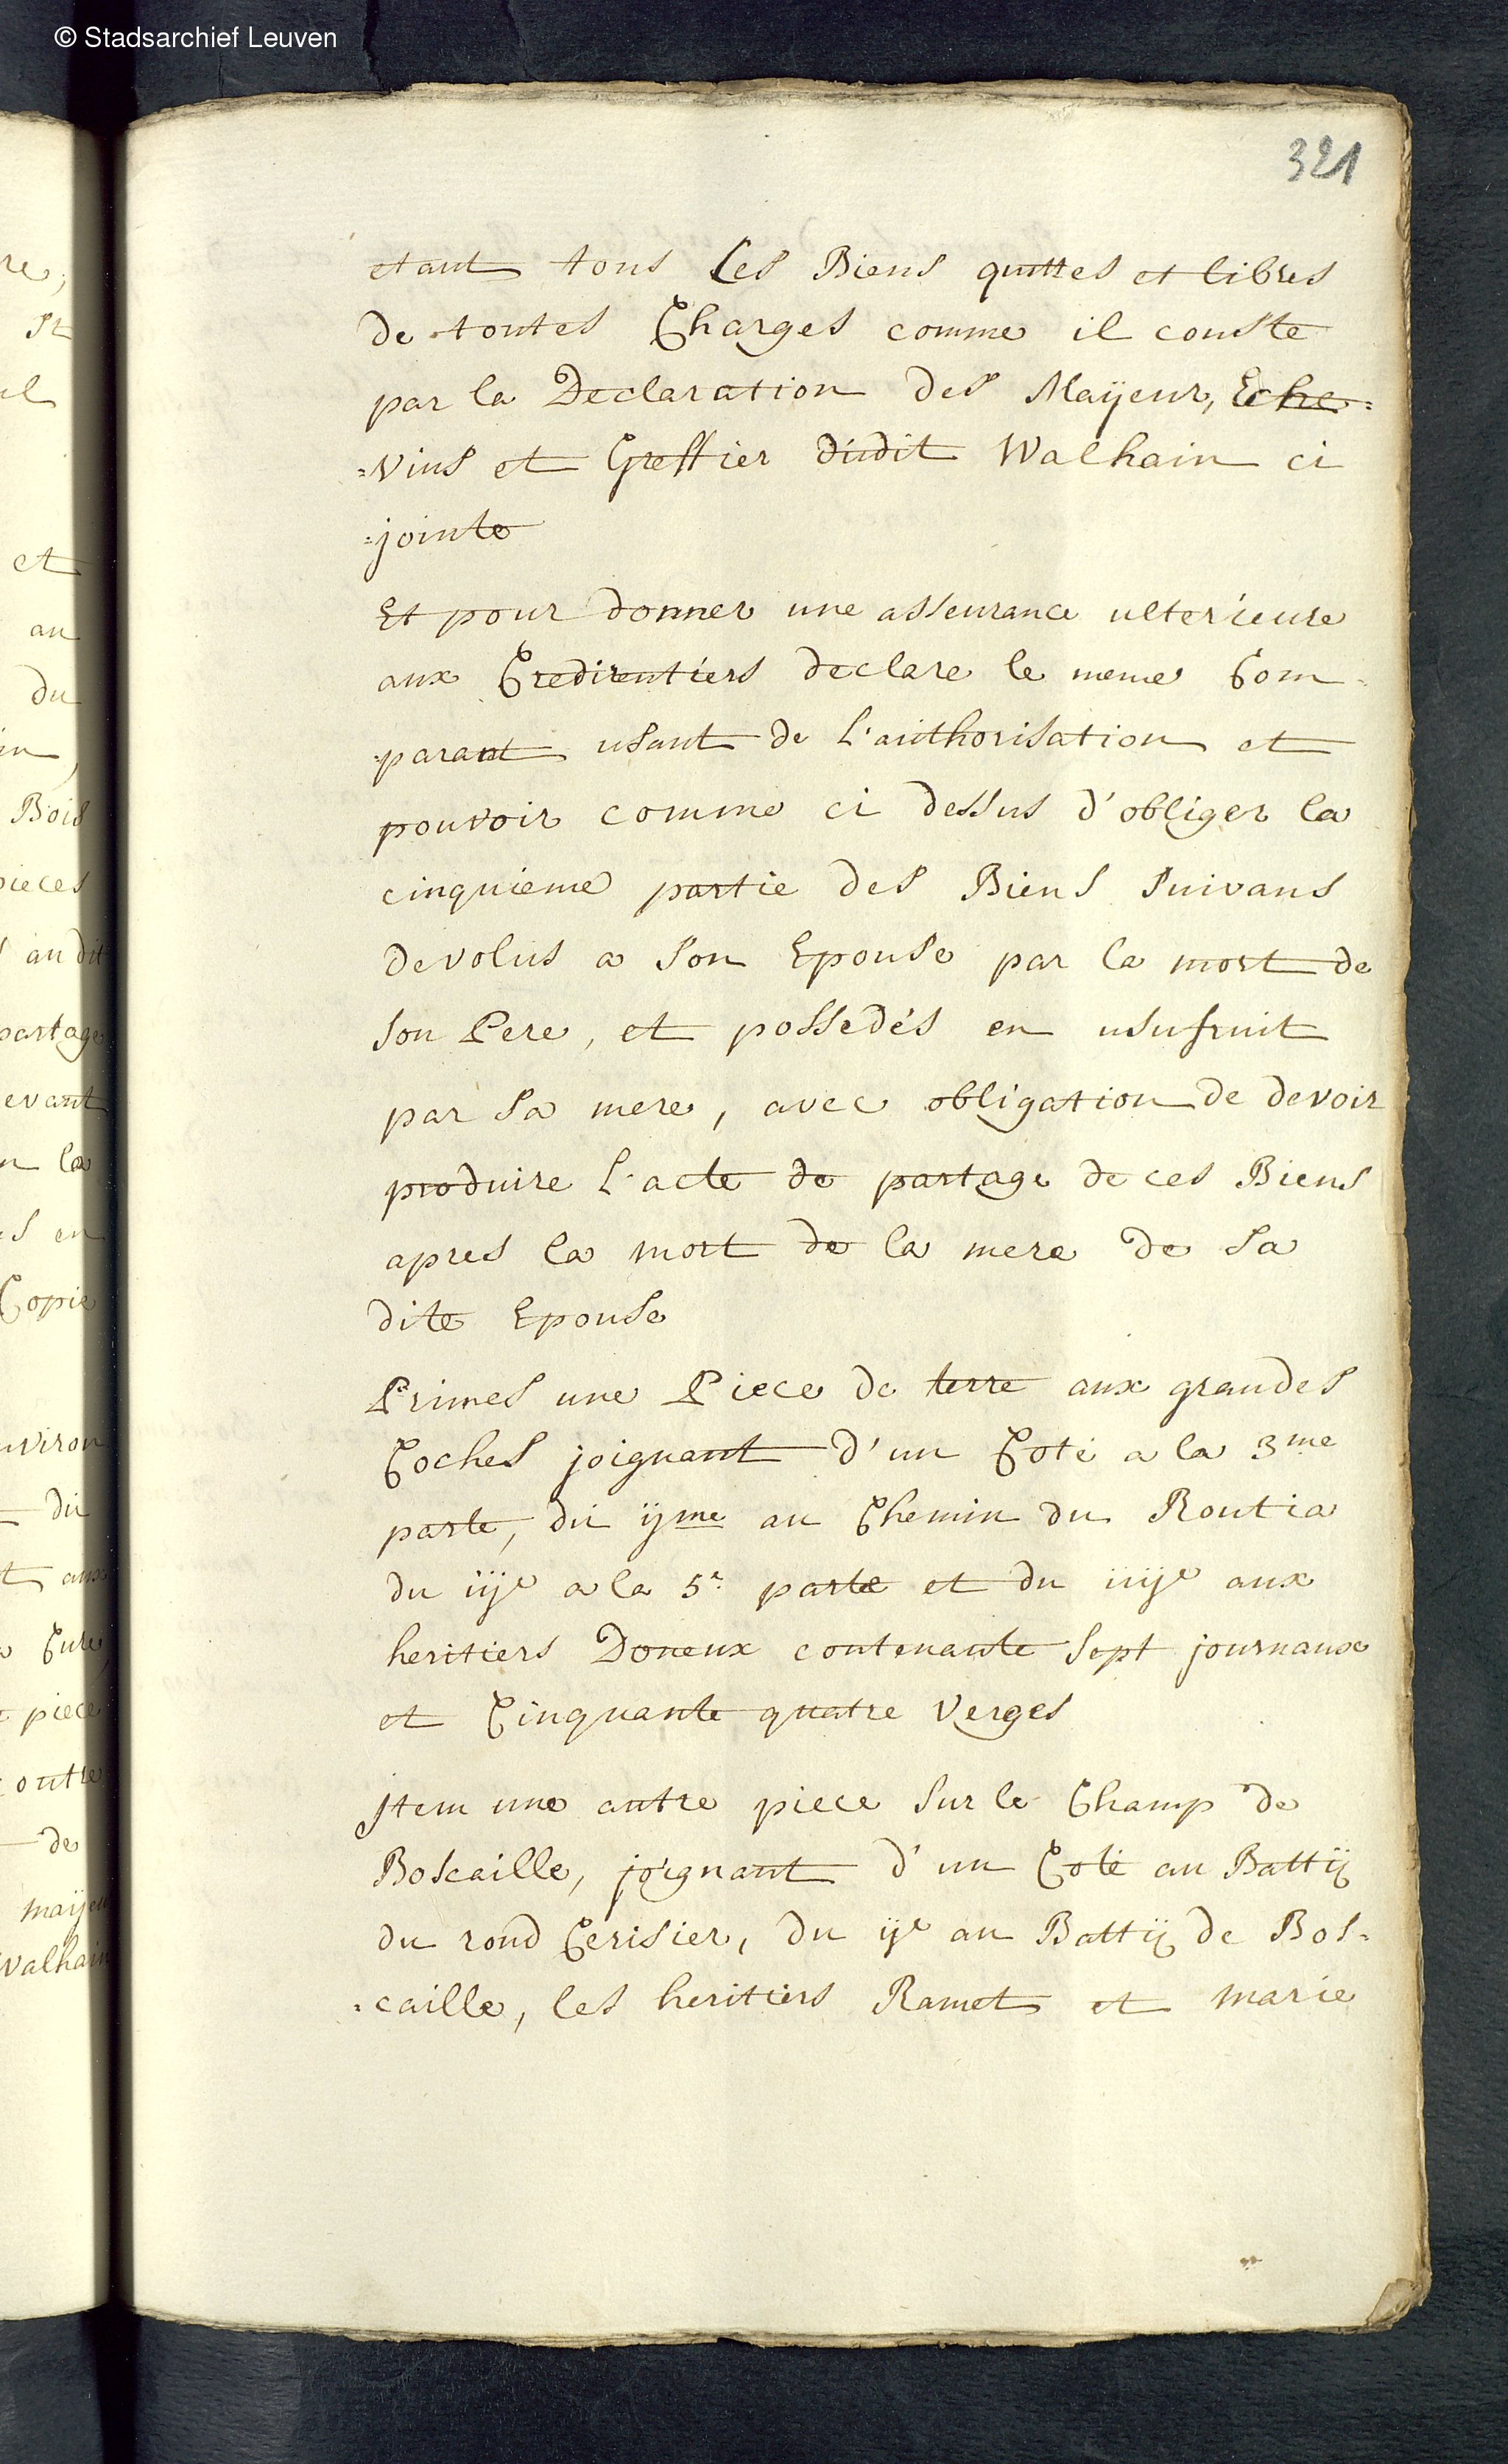 © Stadsarchief Leuven
321
etant tous ces Biens quittes et libres
de toutes Charges comme il conste
par la Declaration des Maÿeur, Eche=
=vins et Greffier dudit Walhain ci
=jointe
Et pour donner une asseurance ulterieure
aux Credirentiers declare le meme Com=
=parant usant de l'authorisation et
pouvoir comme ci dessus d'obliger la
cinquieme partie des Biens suivans
devolus a son Epouse par la mort de
son Pere, et possedés en usufruit
par sa mere, avec obligation de devoir
produire l'acte de partage de ces Biens
apres la mort de la mere de sa
dite Epouse
Primes une Piece de terre aux grandes
Coches joignant d'un Coté a la 3me
parte, du ijme au Chemin du Routia
du iije a la 5e parte et du iiije aux
heritiers Doneux contenante sept journaux
et Cinquante quatre verges
Item une autre piece sur le Champ de
Boscaille, joignant d'un Coté au Battij
du rond Cerisier, du ije au Battij de Bos=
=caille, les heritiers Ramet et marie